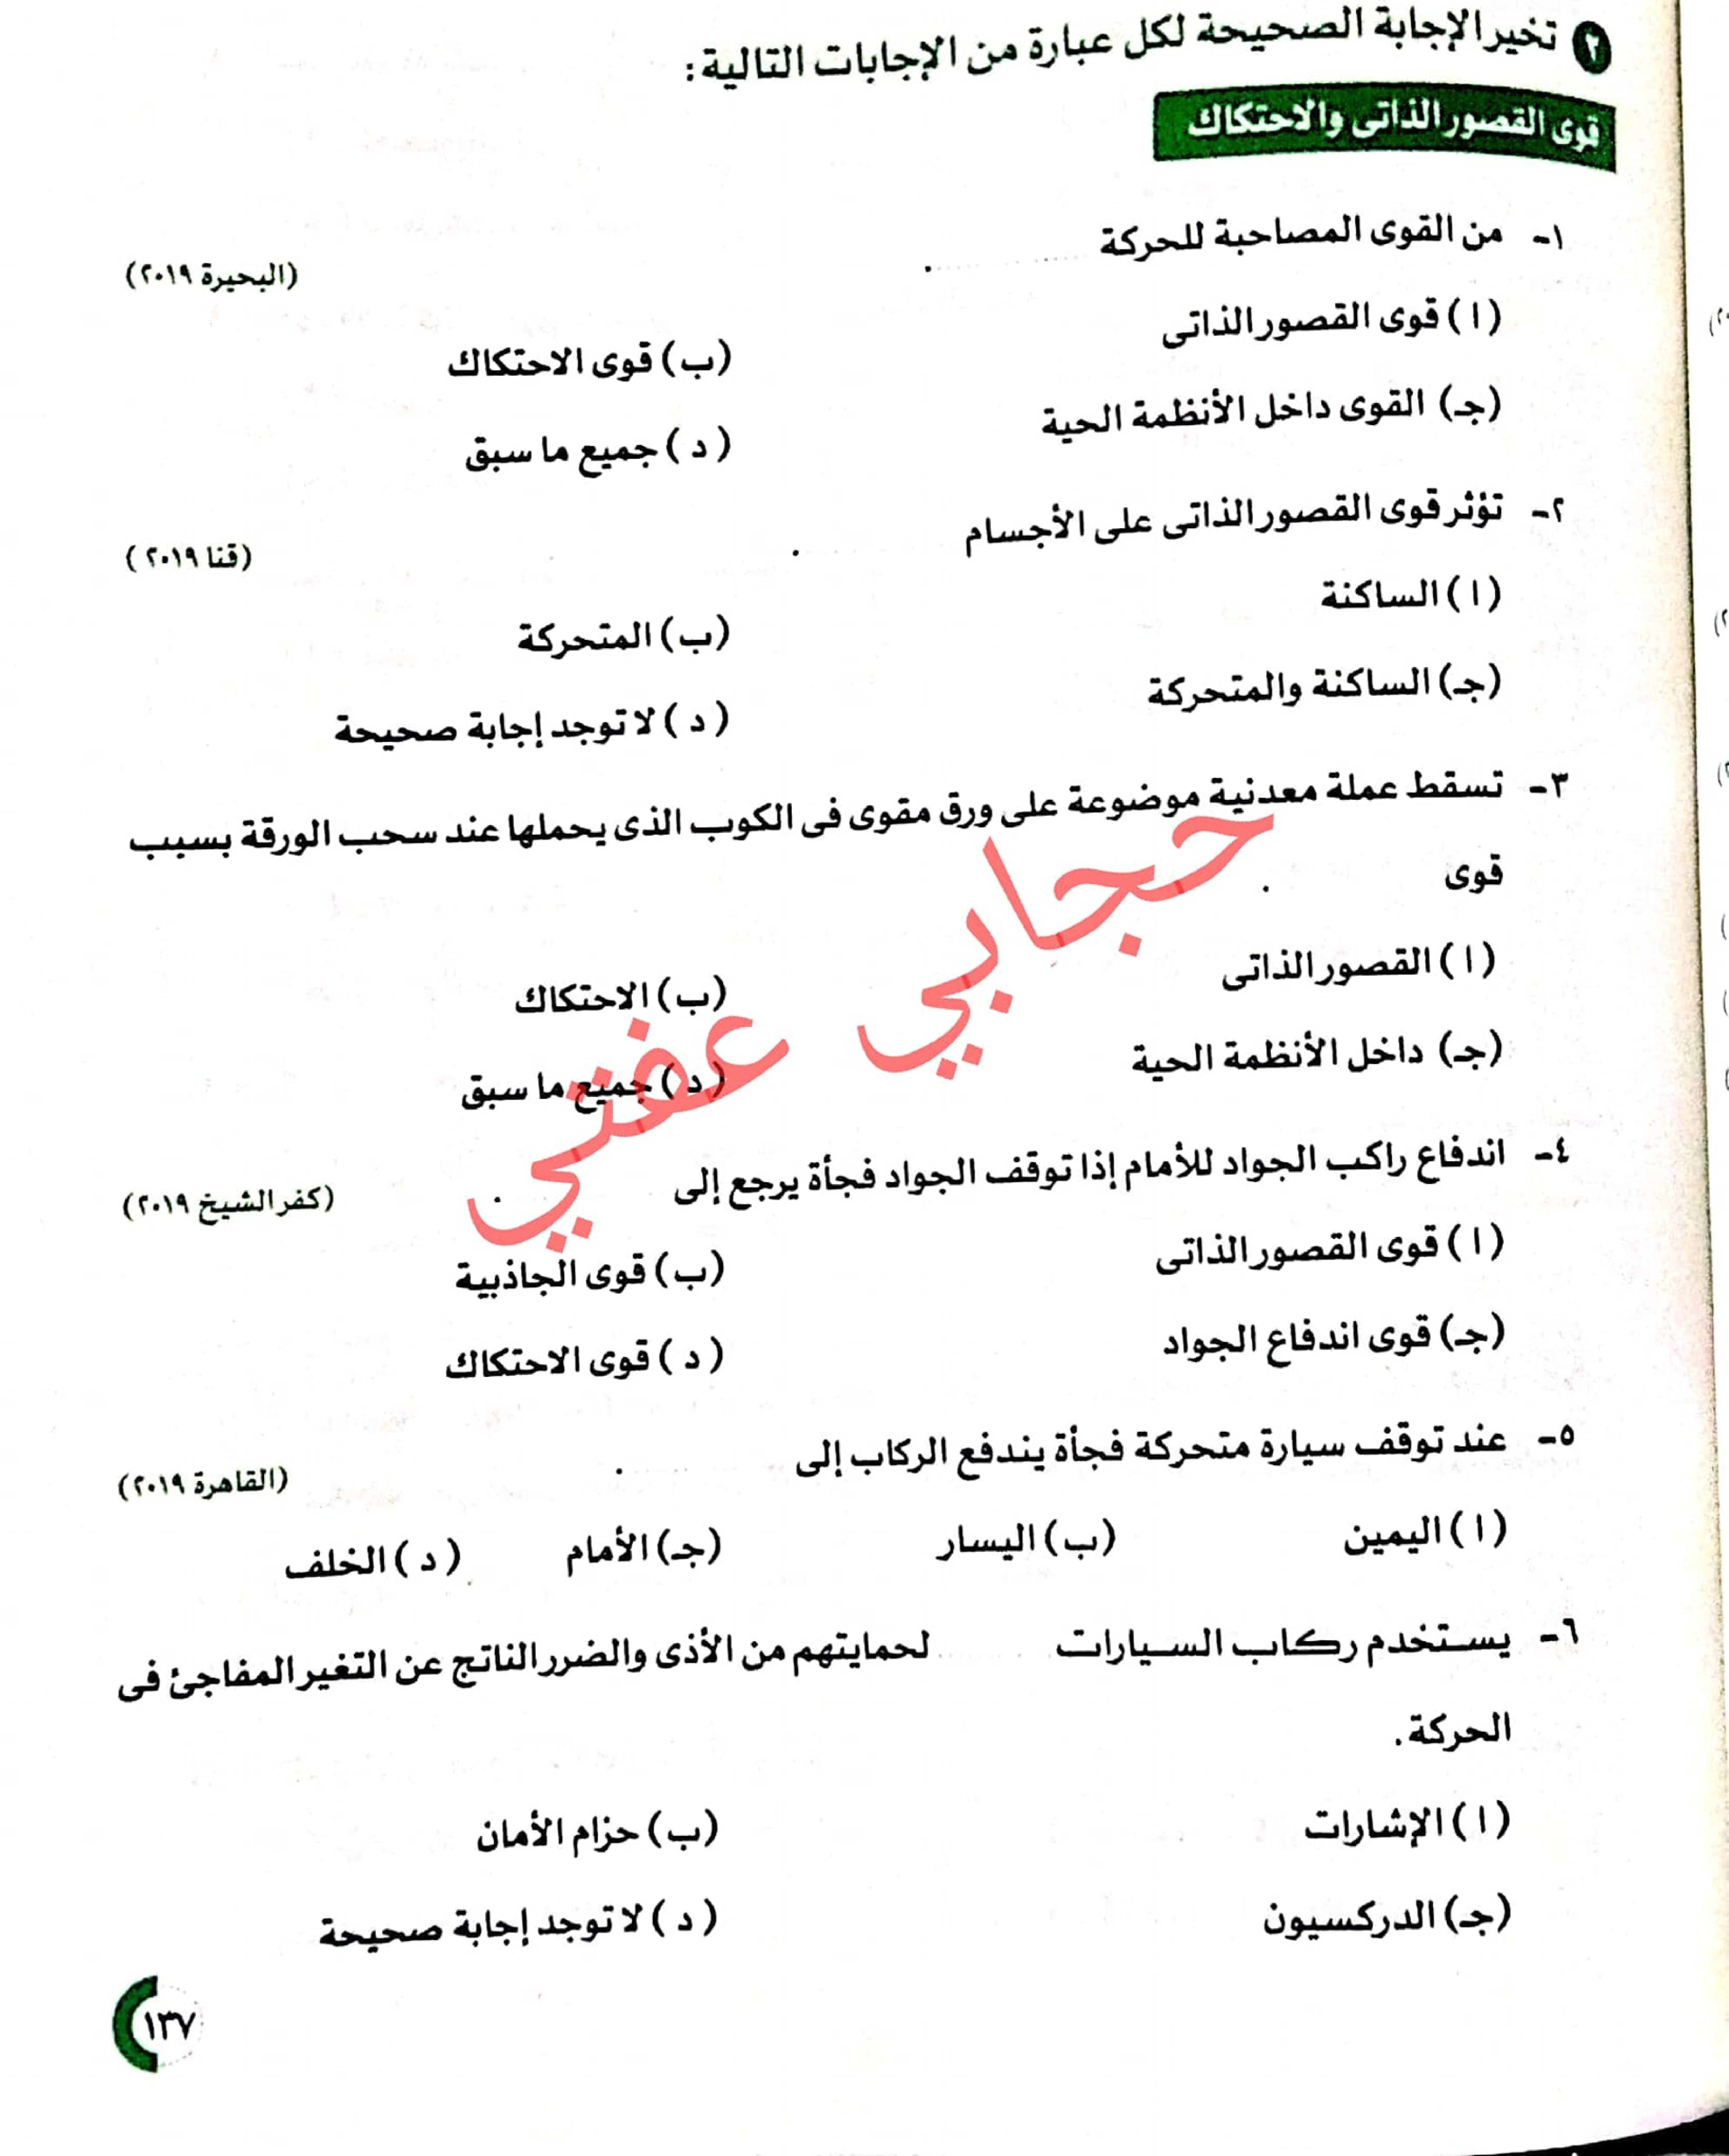 ٢ تخير الإجابة الصحيحة لكل عبارة من الإجابات التالية:
قوى القصور الذاتى والاحتكاك
١- من القوى المصاحبة للحركة .......... . (البحيرة ٢٠١٩)
(ا) قوى القصور الذاتى (ب) قوى الاحتكاك
(جـ) القوى داخل الأنظمة الحية (د) جميع ما سبق
٢- تؤثر قوى القصور الذاتى على الأجسام . (قنا ٢٠١٩)
(ا) الساكنة (ب) المتحركة
(جـ) الساكنة والمتحركة (د) لا توجد إجابة صحيحة
٣- تسقط عملة معدنية موضوعة على ورق مقوى فى الكوب الذى يحملها عند سحب الورقة بسبب
قوى .
(ا) القصور الذاتى (ب) الاحتكاك
(جـ) داخل الأنظمة الحية (د) جميع ما سبق
حجابي عفتي
٤- اندفاع راكب الجواد للأمام إذا توقف الجواد فجأة يرجع إلى . (كفر الشيخ ٢٠١٩)
(ا) قوى القصور الذاتى (ب) قوى الجاذبية
(جـ) قوى اندفاع الجواد (د) قوى الاحتكاك
٥- عند توقف سيارة متحركة فجأة يندفع الركاب إلى .......... . (القاهرة ٢٠١٩)
(ا) اليمين (ب) اليسار (جـ) الأمام (د) الخلف
٦- يستخدم ركاب السيارات .......... لحمايتهم من الأذى والضرر الناتج عن التغير المفاجئ فى
الحركة.
(ا) الإشارات (ب) حزام الأمان
(جـ) الدركسيون (د) لا توجد إجابة صحيحة
١٣٧